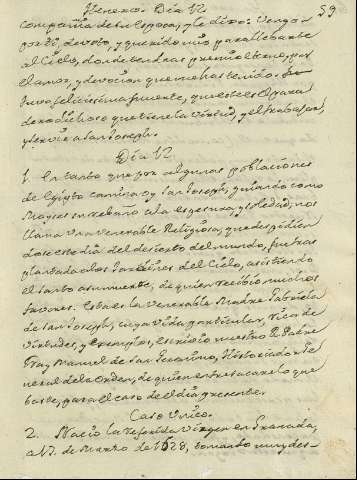 Henero. Dia 12 59
Compañia de su Esposa, y le dixo: Vengo
por ti, devoto, y querido mio para llevarte
al Cielo, donde tendras premio eterno, por
el amor, y devocion que me has tenido.
tuvo felicissima muerte, que este es el para
dero dichoso que tiene la virtud, y el trabajar,
y servir a San Joseph.
Dia 12
1. En tanto que por algunas poblaciones
de Egipto camina San Joseph, guiando como
Moyses su rebaño a la espesura, y soledad, nos
llama una Venerable Religiosa, que despidien
dose este dia del desierto del mundo, fue tras
plantada a los Jardines del Cielo, asistiendo
el Santo a su muerte, de quien recibio muchos
favores. Esta es la Venerable Madre Gabriela
de San Joseph, cuya Vida particular, rica de
Virtudes, y exemplos, escrivio nuestro R. Padre
Fray Manuel de San Geronimo, Historiador Ge
neral de la Orden, de quien entresacare lo que
baste, para el caso del dia presente.
Caso Unico.
2. Nacio la referida Virgen en Granada,
a 17. de Marzo de 1628, tomando muy des-